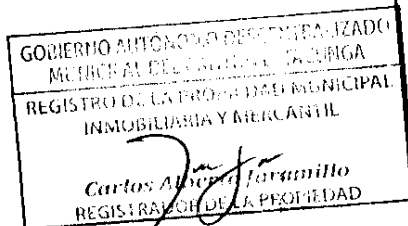 GOBIERNO AUTÓNOMO DESCENTRALIZADO
MUNICIPAL DEL
REGISTRO DE LA PROPIEDAD MUNICIPAL
INMOBILIARIA Y MERCANTIL
Carlos Alberto Jaramillo
REGISTRADOR DE LA PROPIEDAD